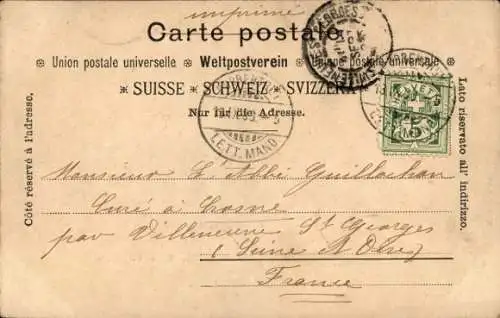 imprimé
Carte postale
Union postale universelle Weltpostverein Unione postale universale
SUISSE SCHWEIZ SVIZZERA
Nur für die Adresse.
Côté réservé à l'adresse.
Lato riservato all' indirizzo.
LETT. MAND.
5
Monsieur L'Abbé Guillochon
Curé à Crosne
par Villeneuve St Georges
(Seine & Oise)
France